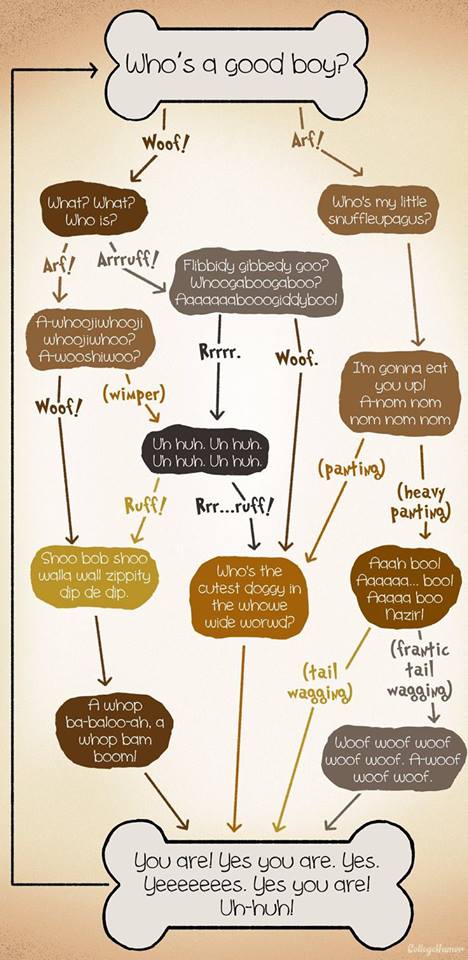 Who's a good boy?
Woof!
Arf!
What? What?
Who is?
Who's my little
snuffleupagus?
Arf!
Arrruff!
Flibbidy gibbedy goo?
Whoogaboogaboo?
Aaaaaaabooogiddyboo!
A-whoojiwhooji
whoojiwhoo?
A-wooshiwoo?
Rrrrr.
Woof.
I'm gonna eat
you up!
A-nom nom
nom nom nom
Woof!
(wimper)
Uh huh. Uh huh.
Uh huh. Uh huh.
(panting)
(heavy
panting)
Ruff!
Rrr...ruff!
Shoo bob shoo
walla wall zippity
dip de dip.
Who's the
cutest doggy in
the whowe
wide worwd?
Aaah boo!
Aaaaaa... boo!
Aaaaa boo
Nazir!
(tail
wagging)
(frantic
tail
wagging)
A whop
ba-baloo-ah, a
whop bam
boom!
Woof woof woof
woof woof woof. A-woof
woof woof.
You are! Yes you are. Yes.
Yeeeeeees. Yes you are!
Uh-huh!
CollegeHumor